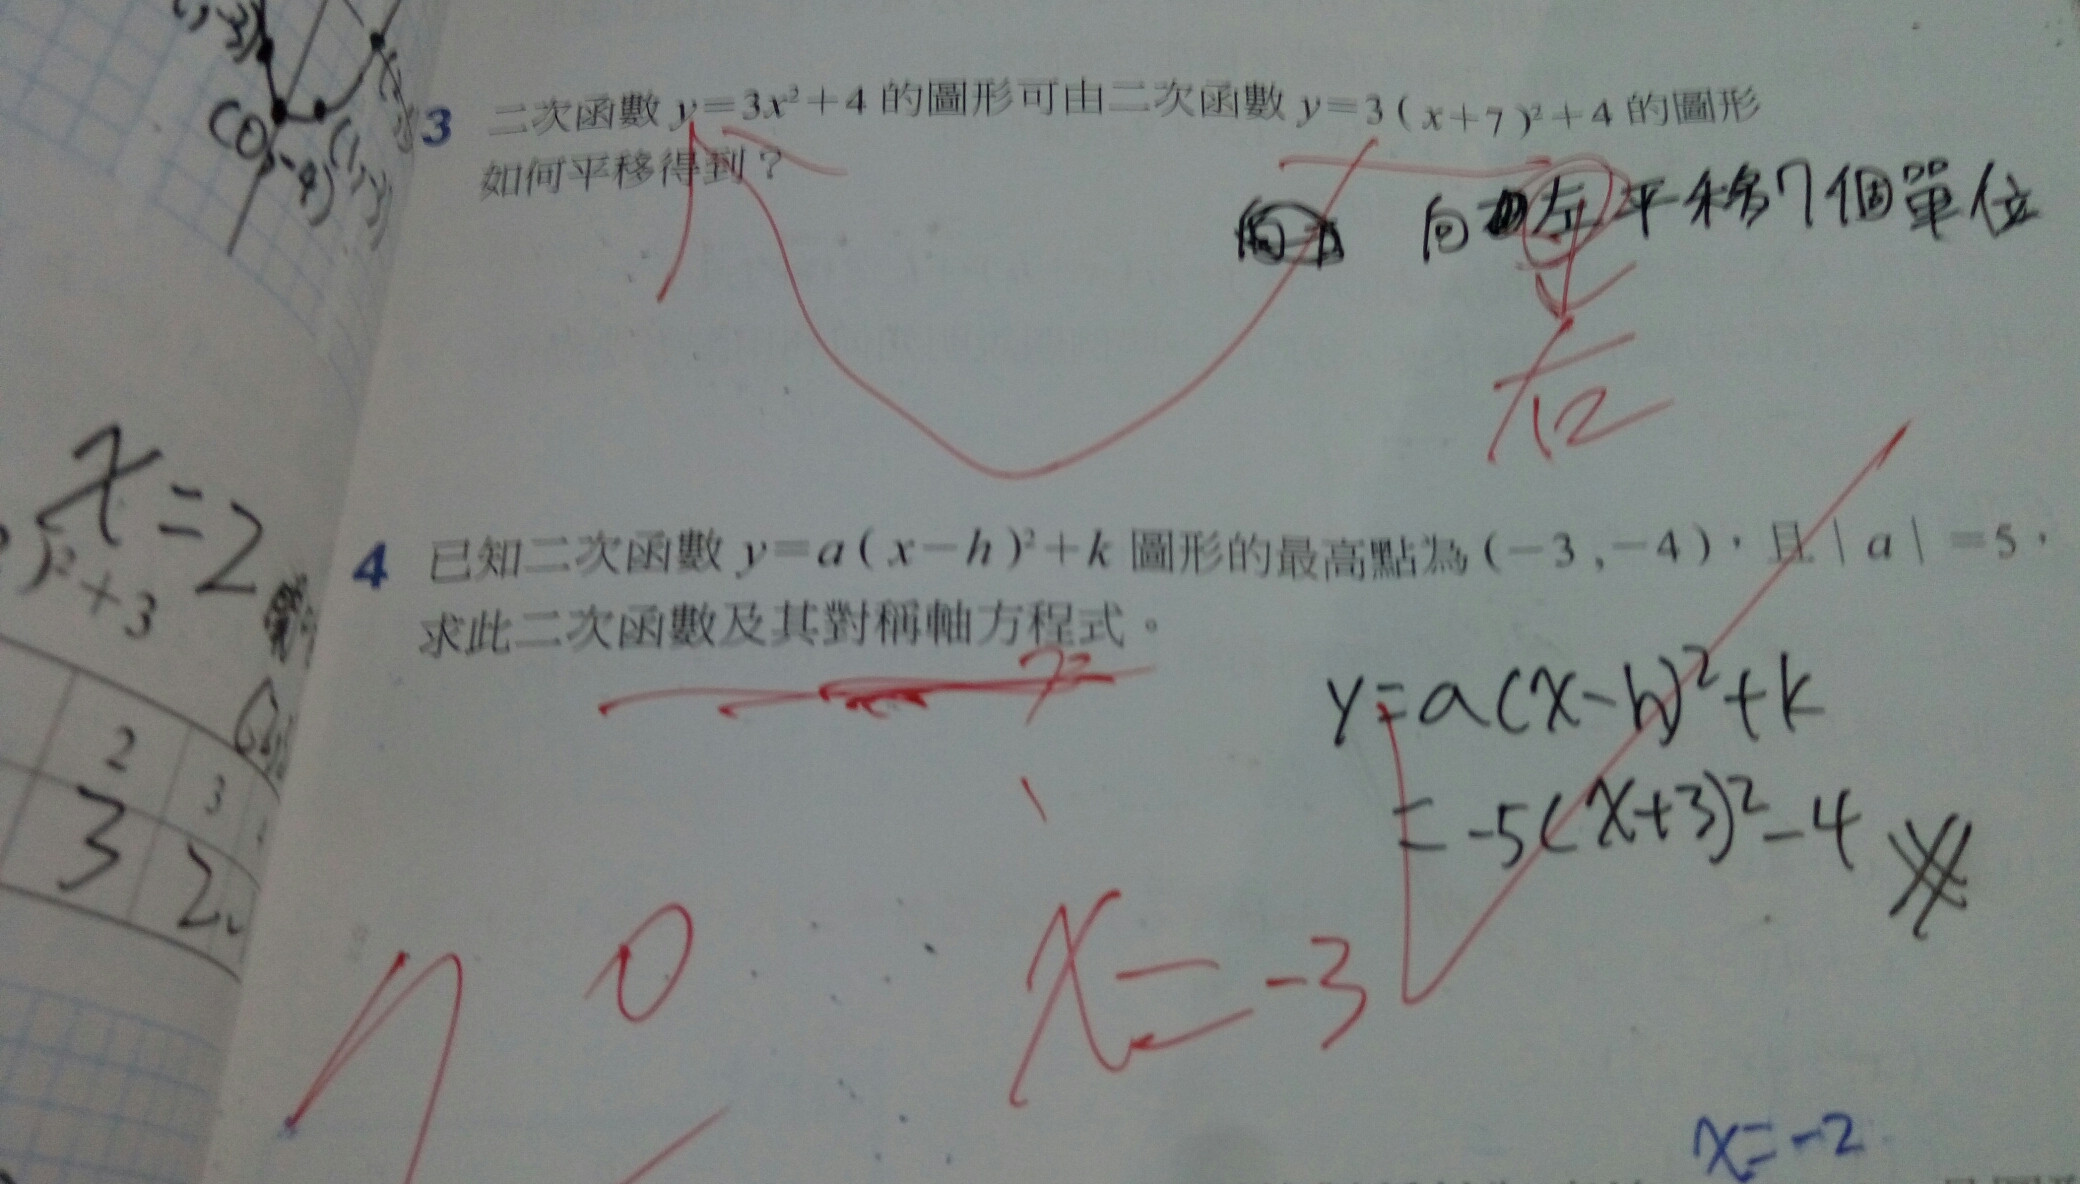 3 二次函數 y=3x²+4 的圖形可由二次函數 y=3(x+7)²+4 的圖形
如何平移得到？
向左平移7個單位
右
4 已知二次函數 y=a(x-h)²+k 圖形的最高點為(-3,-4)，且|a|=5，
求此二次函數及其對稱軸方程式。
y=a(x-h)²+k
=-5(x+3)²-4
x=-3
x=-2
x=2
)²+3
2 3
3 2